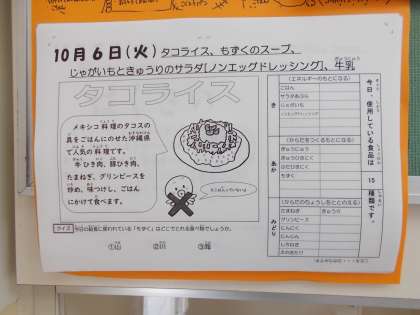 10月6日(火) タコライス、もずくのスープ、
じゃがいもときゅうりのサラダ[ノンエッグドレッシング]、牛乳
タコライス
メキシコ料理のタコスの
具をごはんにのせた沖縄県
で人気の料理です。
牛ひき肉、豚ひき肉、
たまねぎ、グリンピースを
炒め、味つけし、ごはん
にかけて食べます。
クイズ 今日の給食に使われている「もずく」はどこでとれる食べ物でしょうか。
①山 ②川 ③海
き
(エネルギーのもとになる)
ごはん
サラダあぶら
じゃがいも
ノンエッグドレッシング
あか
(からだをつくるもとになる)
ぎゅうにゅう
ぎゅうひきにく
ぶたひきにく
もずく
みどり
(からだのちょうしをととのえる)
たまねぎ きゅうり
グリンピース
にんにく
にんじん
しょうが
今日、使用している食品は
15
種類です。